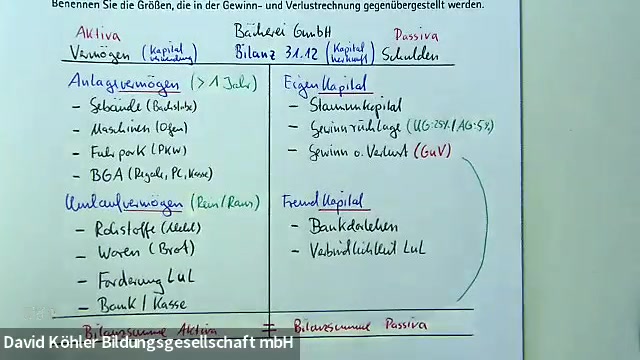 Benennen Sie die Größen, die in der Gewinn- und Verlustrechnung gegenübergestellt werden.
Aktiva Bäckerei GmbH Passiva
Vermögen (Kapitalverwendung) Bilanz 31.12 (Kapitalherkunft) Schulden
Anlagevermögen (> 1 Jahr)
- Gebäude (Backstube)
- Maschinen (Ofen)
- Fuhrpark (PKW)
- BGA (Regale, PC, Kasse)
Umlaufvermögen (Rein/Raus)
- Rohstoffe (Mehl)
- Waren (Brot)
- Forderung LuL
- Bank / Kasse
Bilanzsumme Aktiva = Bilanzsumme Passiva
Eigenkapital
- Stammkapital
- Gewinnrücklage (UG:25%/AG:5%)
- Gewinn o. Verlust (GuV)
Fremdkapital
- Bankdarlehen
- Verbindlichkeit LuL
David Köhler Bildungsgesellschaft mbH